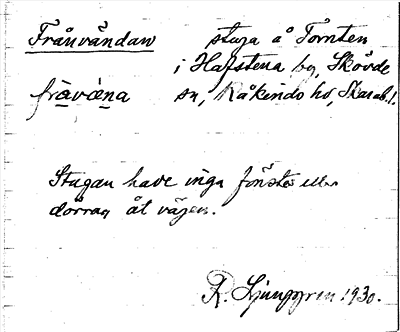 Frånvändan stuga å Tomten
i Hafstena by, Skövde
frå̱vä́ṉa sn, Kåkinds hd, Skarab.l.
Stugan hade inga fönster eller
dörrar åt vägen.
R. Ljunggren 1930.